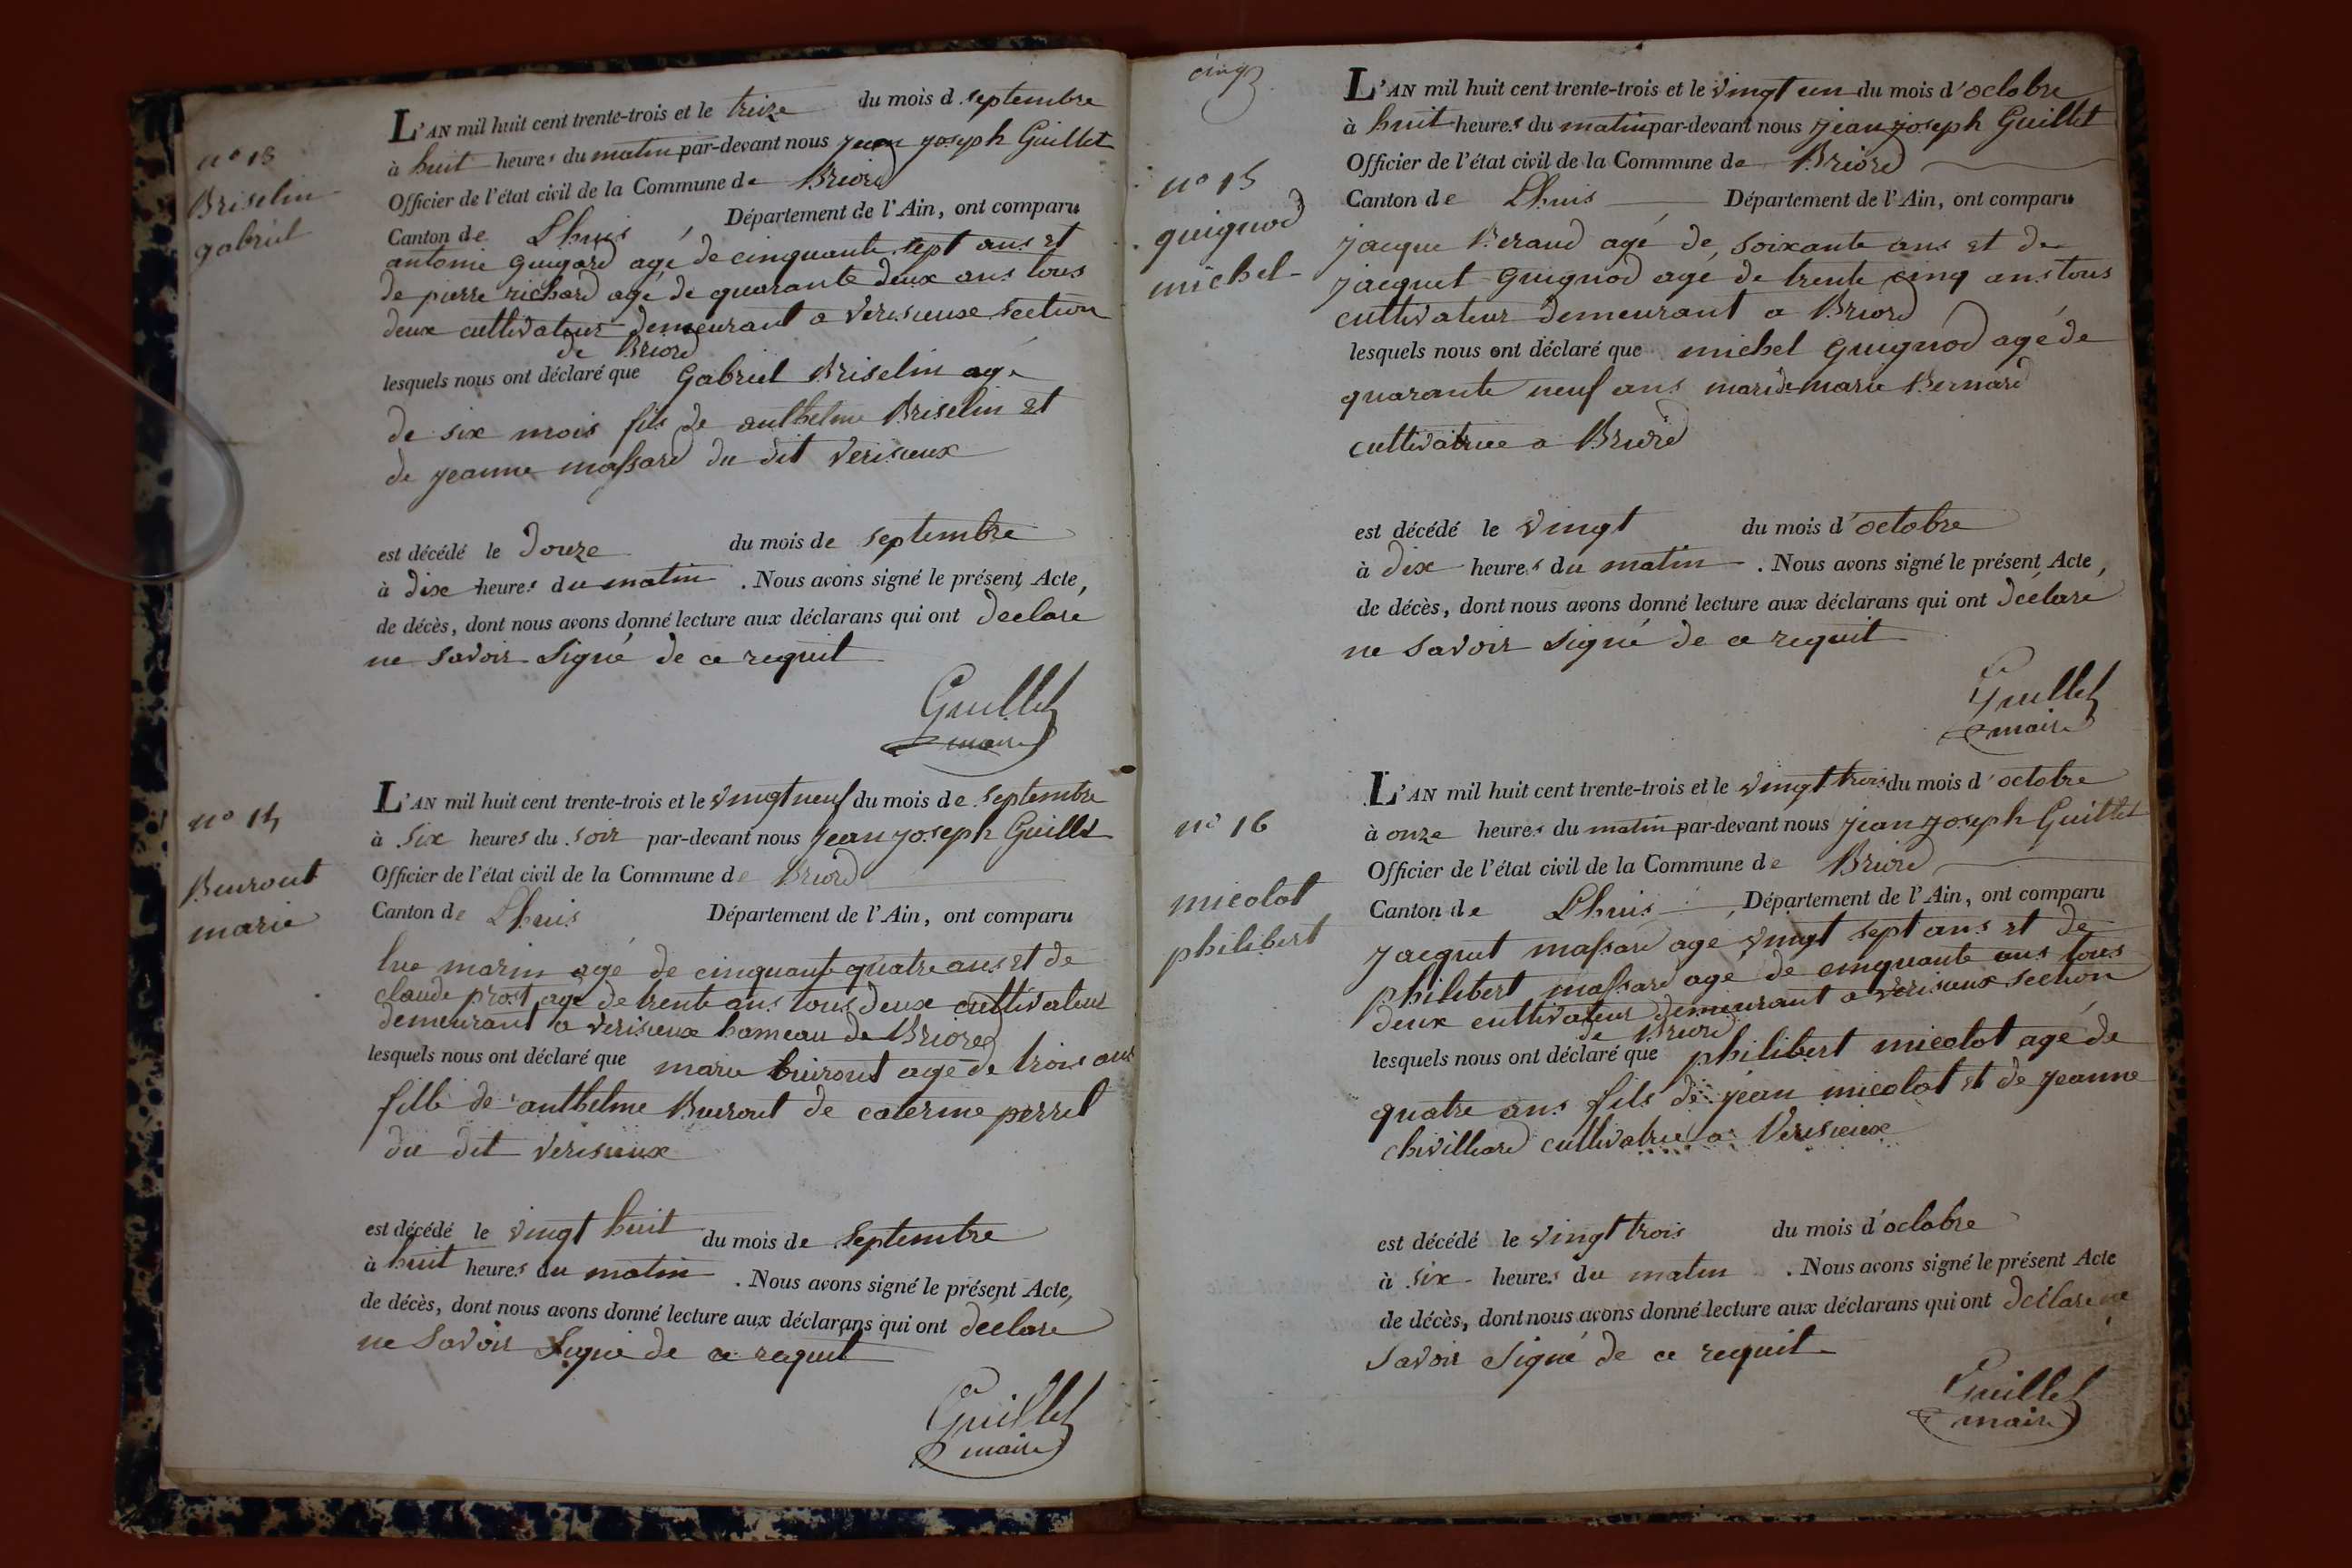 n° 13
Briselin
gabriel
L'AN mil huit cent trente-trois et le treize du mois d septembre
à huit heures du matin par-devant nous jean joseph Guillet
Officier de l'état civil de la Commune de Briord
Canton de Lhuis, Département de l'Ain, ont comparu
antoine guigard agé de cinquante sept ans et
de pierre richard agé de quarante deux ans tous
deux cultivateur demeurant a verisieux section
de Briord
lesquels nous ont déclaré que Gabriel Briselin agé
de six mois fils de anthelme Briselin et
de jeanne massard du dit verisieux
est décédé le douze du mois de septembre
à dix heures du matin. Nous avons signé le présent Acte,
de décès, dont nous avons donné lecture aux déclarans qui ont declare
ne savoir signé de ce requit
Guillet
maire
n° 14
Buirout
marie
L'AN mil huit cent trente-trois et le vingt neuf du mois de septembre
à six heures du soir par-devant nous jean joseph Guillet
Officier de l'état civil de la Commune de Briord
Canton de Lhuis Département de l'Ain, ont comparu
luc marin agé de cinquante quatre ans et de
claude prost agé de trente ans tous deux cultivateur
demeurant a verisieux hameau de Briord
lesquels nous ont déclaré que marie buirout agé de trois ans
fille de anthelme Buirout de caterine perret
du dit verisieux
est décédé le vingt huit du mois de septembre
à huit heures du matin. Nous avons signé le présent Acte,
de décès, dont nous avons donné lecture aux déclarans qui ont déclaré
ne savoir signé de ce requit
Guillet
maire
cinq
n° 15
guignod
michel
L'AN mil huit cent trente-trois et le vingt un du mois d'octobre
à huit heures du matin par-devant nous jean joseph Guillet
Officier de l'état civil de la Commune de Briord
Canton de Lhuis Département de l'Ain, ont comparu
jacque Beraud agé de soixante ans et de
jacquet guignod agé de trente cinq ans tous
cultivateur demeurant a Briord
lesquels nous ont déclaré que michel guignod agé de
quarante neuf ans mari de marie Bernard
cultivatrice a Briord
est décédé le vingt du mois d'octobre
à dix heures du matin. Nous avons signé le présent Acte,
de décès, dont nous avons donné lecture aux déclarans qui ont déclaré
ne savoir signé de ce requit
Guillet
maire
n° 16
micolot
philibert
L'AN mil huit cent trente-trois et le vingt trois du mois d'octobre
à onze heures du matin par-devant nous jean joseph Guillet
Officier de l'état civil de la Commune de Briord
Canton de Lhuis, Département de l'Ain, ont comparu
jacquet massard age vingt sept ans et de
philibert massard agé de cinquante ans tous
deux cultivateur demeurant a verisieux section
de Briord
lesquels nous ont déclaré que philibert micolot agé de
quatre ans fils de jean micolot et de jeanne
chivilliard cultivatrice a Verisieux
est décédé le vingt trois du mois d'octobre
à six heures du matin. Nous avons signé le présent Acte
de décès, dont nous avons donné lecture aux déclarans qui ont déclaré ne
savoir signé de ce requit
Guillet
maire